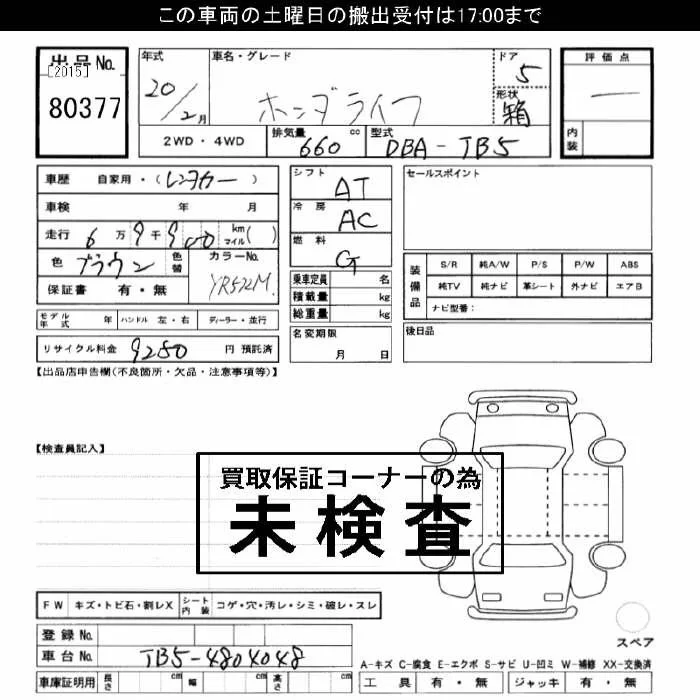 この車両の土曜日の搬出受付は17:00まで
出品No.
[2015]
80377
年式
20/2月
車名・グレード
ホンダライフ
ドア
5
形状
箱
評価点
—
内装
2WD・4WD
排気量 660 cc
型式 DBA-TB5
車歴 自家用・(レンタカー)
車検 年 月
走行 6万9千900 km マイル( )
色 ブラウン 色替
カラーNo.
YR572M
保証書 有・無
シフト AT
冷房 AC
燃料 G
乗車定員 名
積載量 kg
総重量 kg
セールスポイント
装備品
S/R 純A/W P/S P/W ABS
純TV 純ナビ 革シート 外ナビ エアB
ナビ型番:
モデル年式 年 ハンドル 左・右 ディーラー・並行
名変期限 月 日
後日品
リサイクル料金 9280 円 預託済
【出品店申告欄(不良箇所・欠品・注意事項等)】
【検査員記入】
買取保証コーナーの為
未検査
FW キズ・トビ石・割レX シート内装 コゲ・穴・汚レ・シミ・破レ・スレ
登録No.
車台No. TB5-4804048
スペア
A-キズ C-腐食 E-エクボ S-サビ U-凹ミ W-補修 XX-交換済
車庫証明用 長さ cm 幅 cm 高さ cm
工具 有・無 ジャッキ 有・無